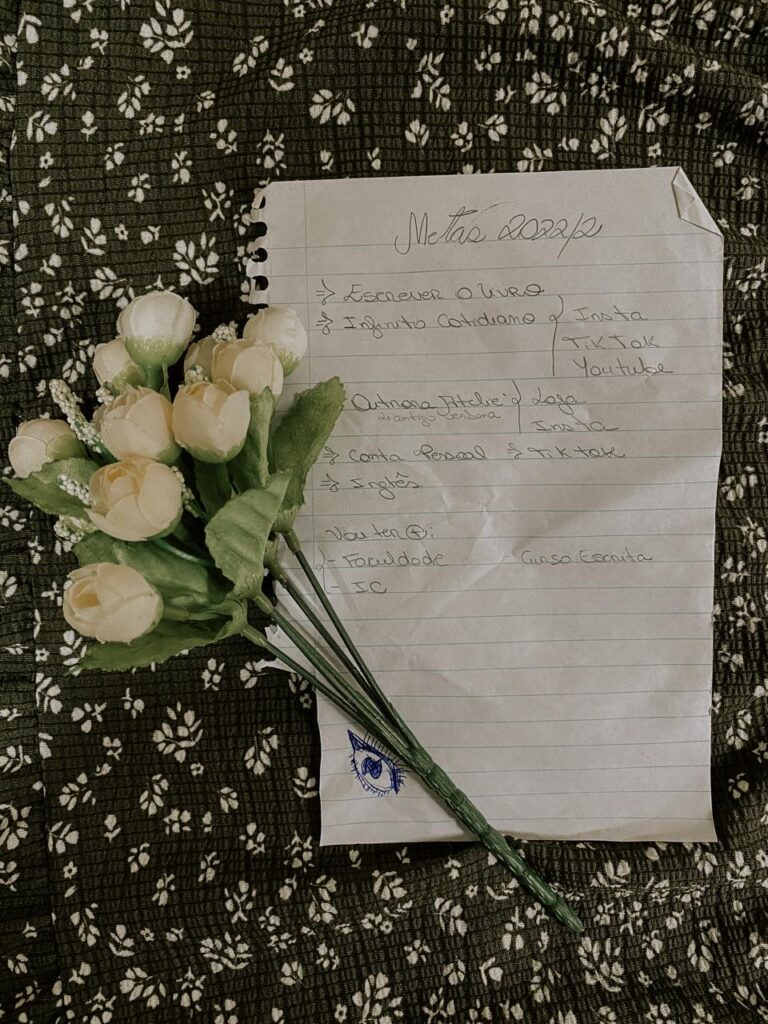 Metas 2022/2
⇒ Escrever o livro
⇒ Infinito Cotidiano { Insta
TikTok
Youtube
Ateliê { Loja
Insta
⇒ Conta Pessoal ⇒ TikTok
⇒ Inglês
Vou ter ⊕:
- Faculdade - Curso Escrita
- IC